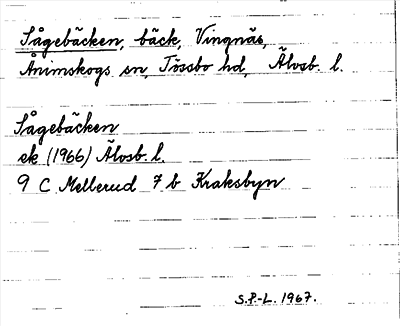 Sågebäcken, bäck, Vingnäs,
Ånimskogs sn, Tössbo hd, Älvsb. l.
Sågebäcken
ek (1966) Älvsb. l.
9 C Mellerud 7 b Kraksbyn
S.P.-L. 1967.